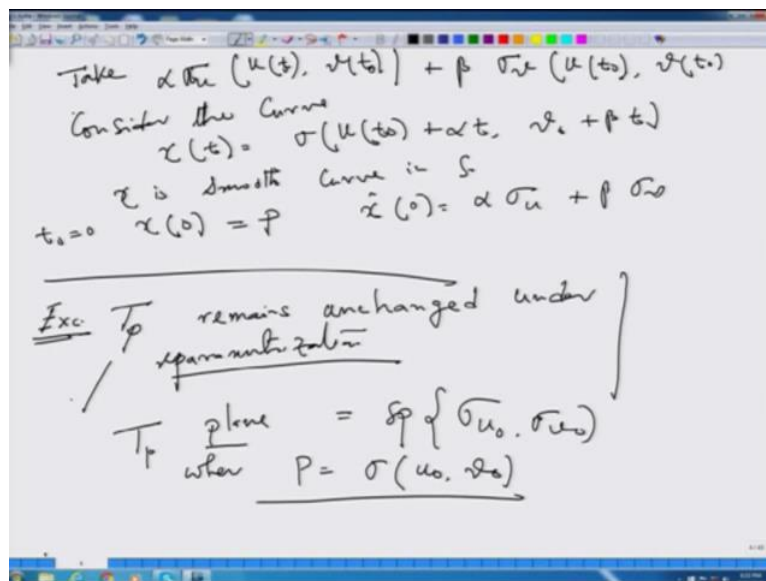 Take α σu (u(t), v(t0)) + β σv (u(t0), v(t0)
Consider the Curve
x(t) = σ(u(t0) + αt, v0 + βt)
x is smooth curve in S
t0=0 x(0) = P ẋ(0) = α σu + β σv
Exc. Tp remains unchanged under
reparametrization
Tp plane = Sp { σu0, σv0 )
when P = σ(u0, v0)